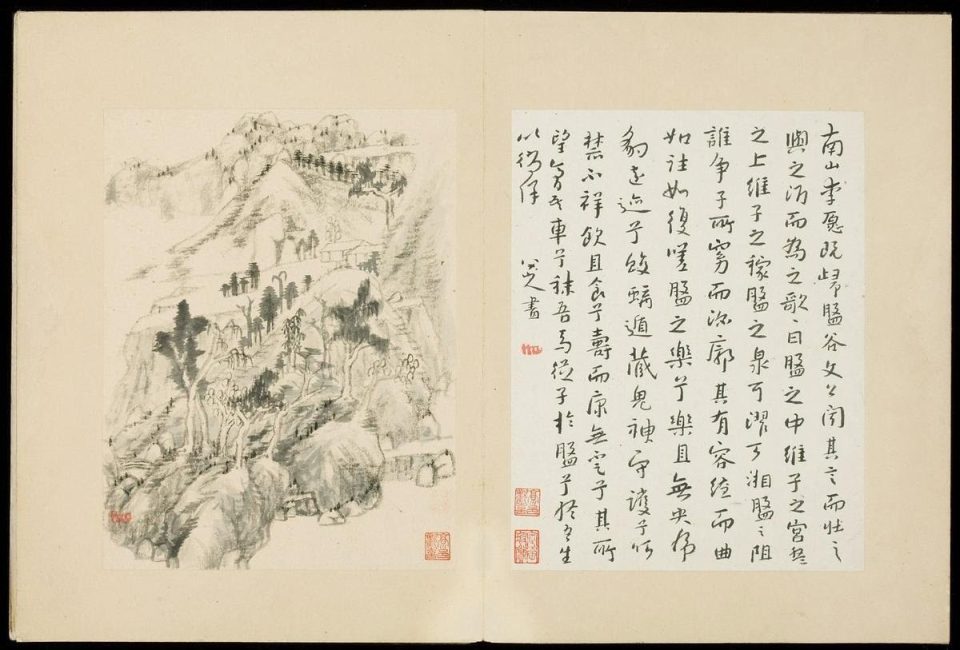 南山李愿既歸盤谷文公聞其言而壯之
與之酒而為之歌〻曰盤之中維子之宮盤
之上維子之稼盤之泉可濯可湘盤〻阻
誰爭子所窈而深廓其有容繚而曲
如往如復嗟盤之樂兮樂且無央虎
豹遠迹兮蛟螭遁藏鬼神守護兮呵
禁不祥飲且食兮壽而康無兮其所
望膏吾車兮秣吾馬從子於盤兮終吾生
以徜徉
八大書